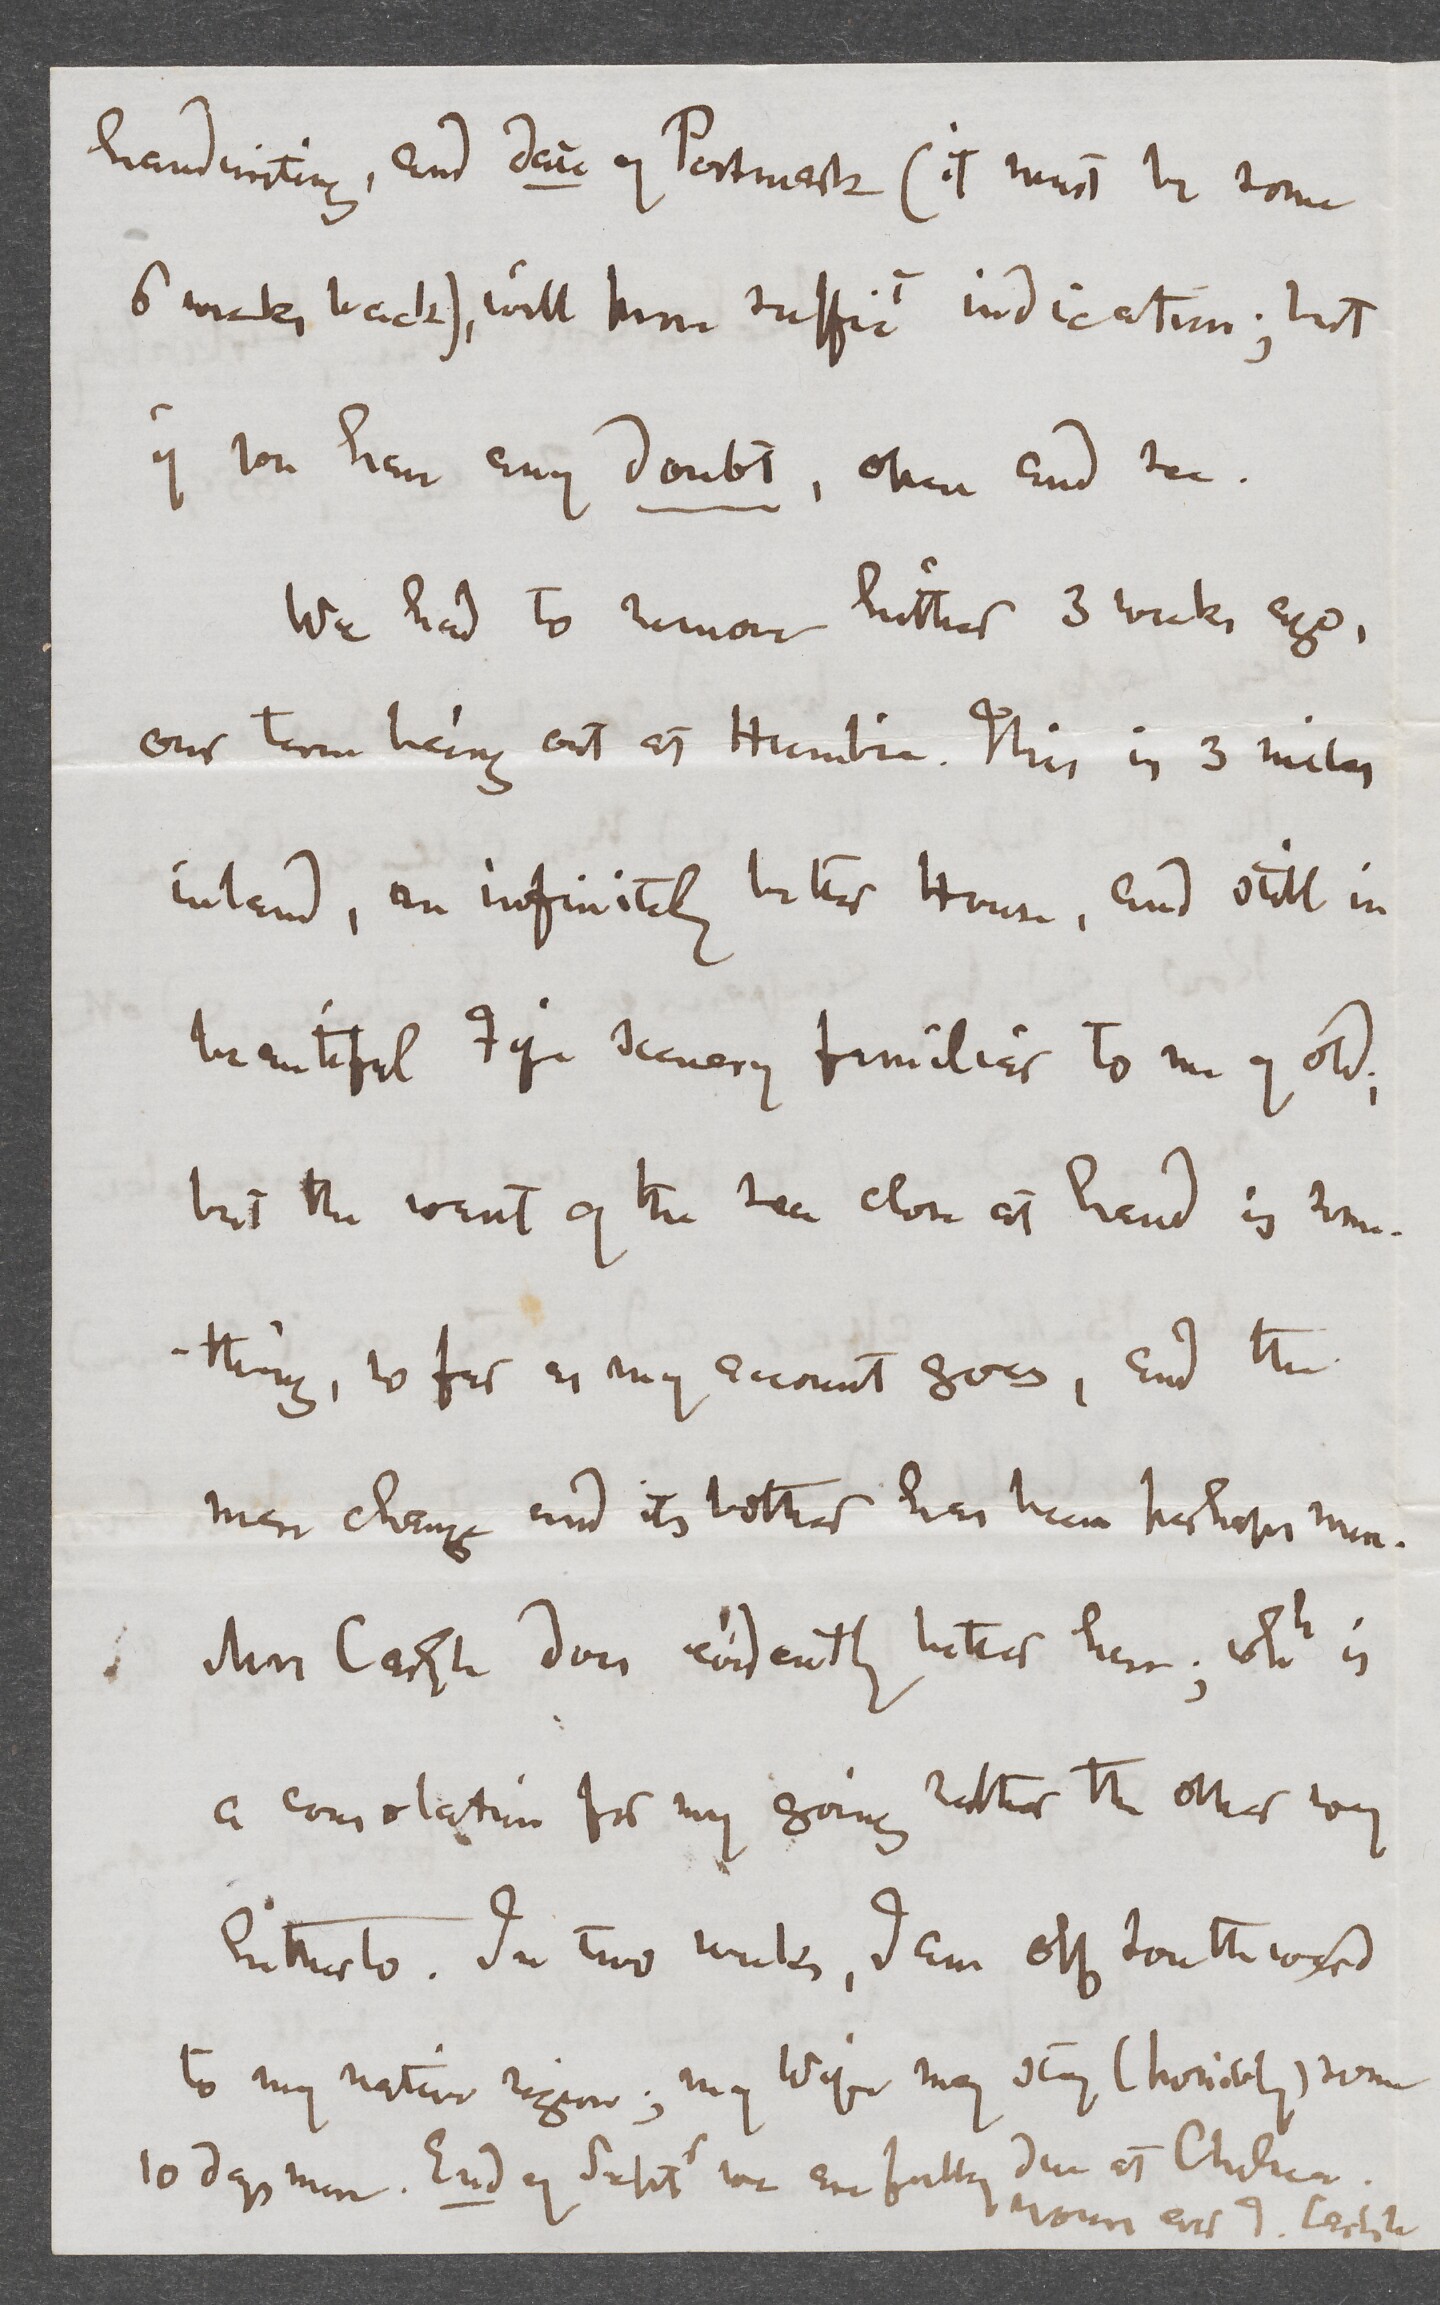 handwriting, and date of Postmark (it must be some
6 weeks back), will prove suffict indication; but
if you have any doubt, open and see.
We had to remove hither 3 weeks ago,
our term being out at Humbie. This is 3 miles
inland, an infinitely better House, and still in
beautiful Fife scenery familiar to me of old;
but the want of the sea close at hand is some-
-thing, so far as my account goes, and the
mere change and its bother has been perhaps more.
Mrs Carlyle does evidently better here; whh is
a consolation for my going rather the other way
hitherto. In two weeks, I am off southward
to my native region; my Wife may stay (possibly) some
10 days more. End of Septr we are fully due at Chelsea.
Yours ever T. Carlyle